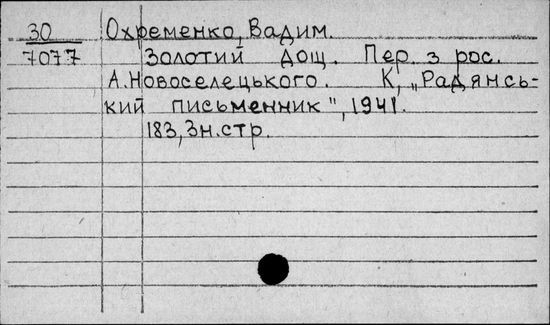 30 Охременко, Вадим.
7077 Золотий дощ. Пер. з рос.
А. Новоселецького. К, „Радянсь-
кий письменник", 1941.
183, 3н. стр.